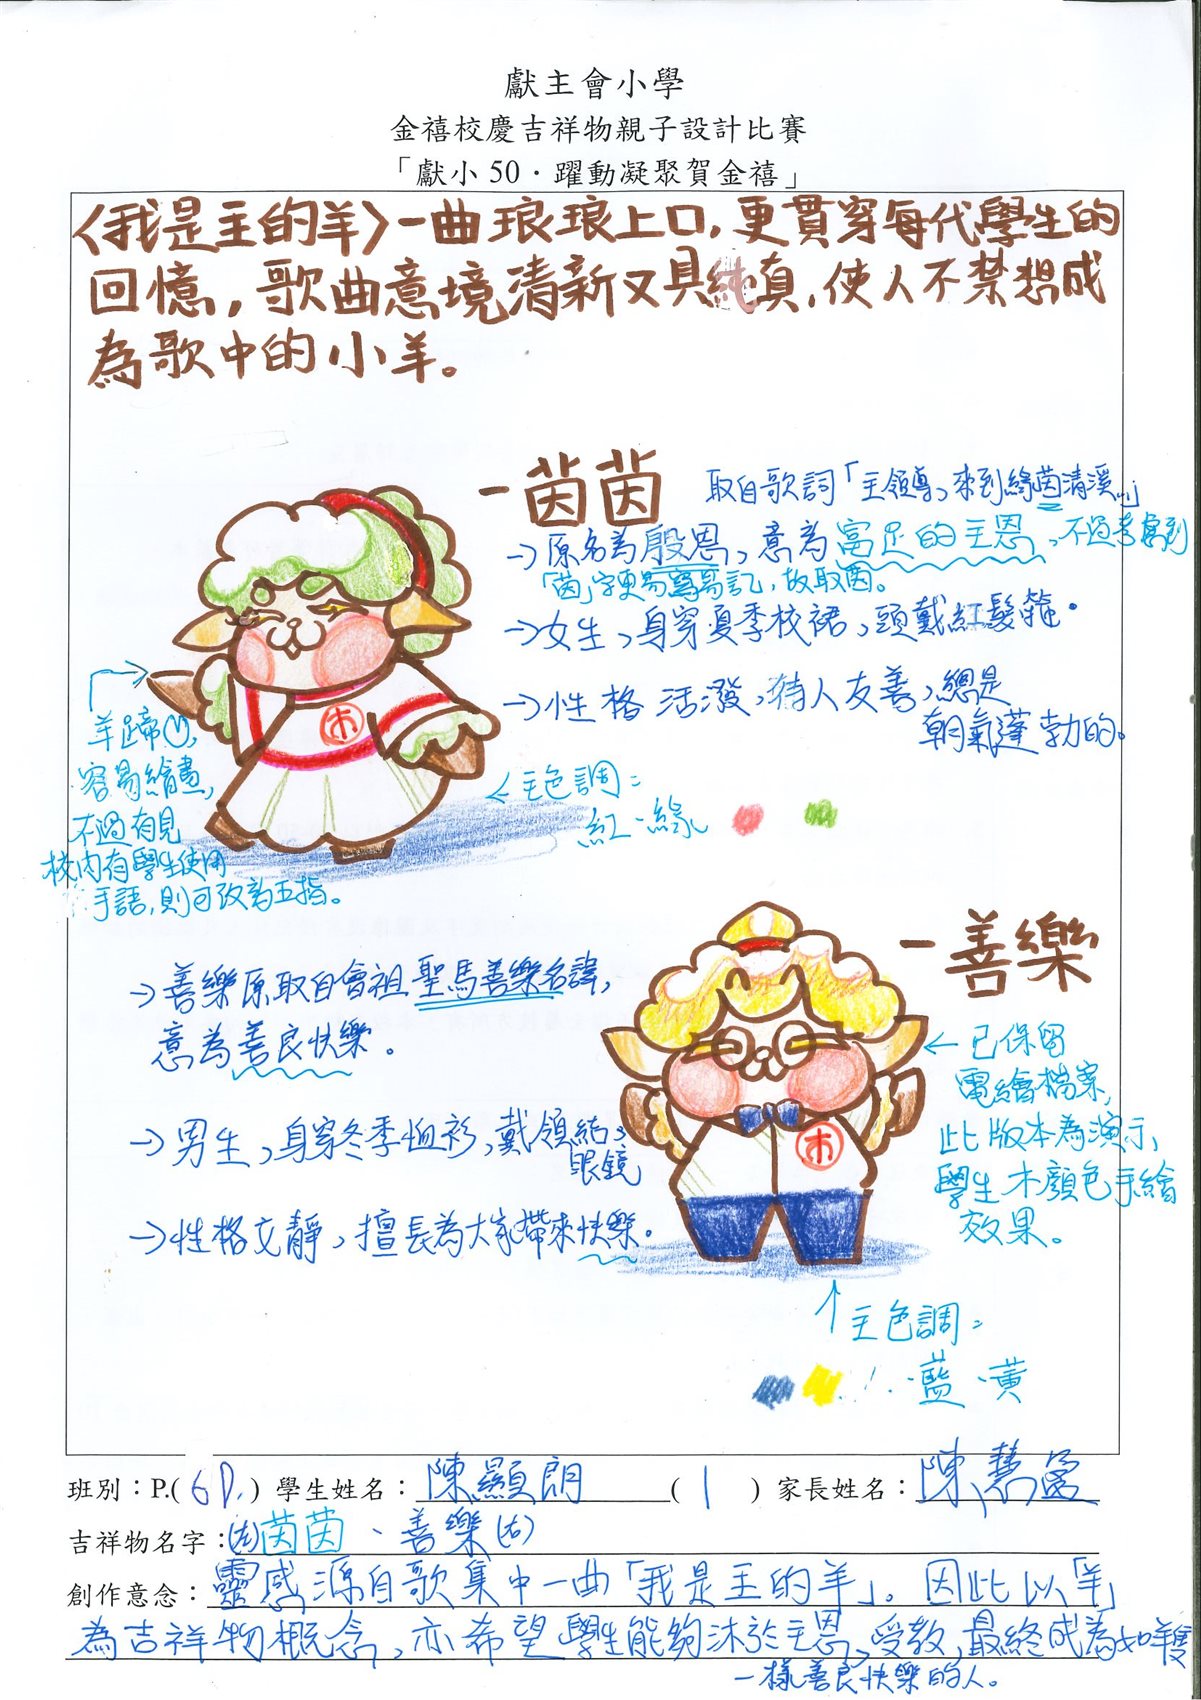 獻主會小學
金禧校慶吉祥物親子設計比賽
「獻小 50．躍動凝聚賀金禧」
〈我是主的羊〉一曲琅琅上口，更貫穿每代學生的
回憶，歌曲意境清新又具純真，使人不禁想成
為歌中的小羊。
－茵茵
取自歌詞「主領導，來到綠茵清溪…」
→原名為殷恩，意為富足的主恩，不過考慮到
「茵」字更易寫易記，故取茵。
→女生，身穿夏季校裙，頭戴紅髮箍。
→性格活潑，待人友善，總是
朝氣蓬勃的。
羊蹄
容易繪畫，
不過有見
校內有學生使用
手語，則可改為五指。
←主色調：
紅、綠
－善樂
→善樂原取自會祖聖馬善樂名諱，
意為善良快樂。
→男生，身穿冬季恤衫，戴領結、
眼鏡
→性格文靜，擅長為大家帶來快樂。
←已保留
電繪檔案，
此版本為演示
學生木顏色手繪
效果。
↑主色調：
藍、黃
班別：P.(6D.) 學生姓名：陳顯朗 (1) 家長姓名：陳慧盈
吉祥物名字：(左)茵茵、善樂(右)
創作意念：靈感源自歌集中一曲「我是主的羊」。因此以「羊」
為吉祥物概念，亦希望學生能夠沐於主恩，受教，最終成為如
一樣善良快樂的人。
木
木